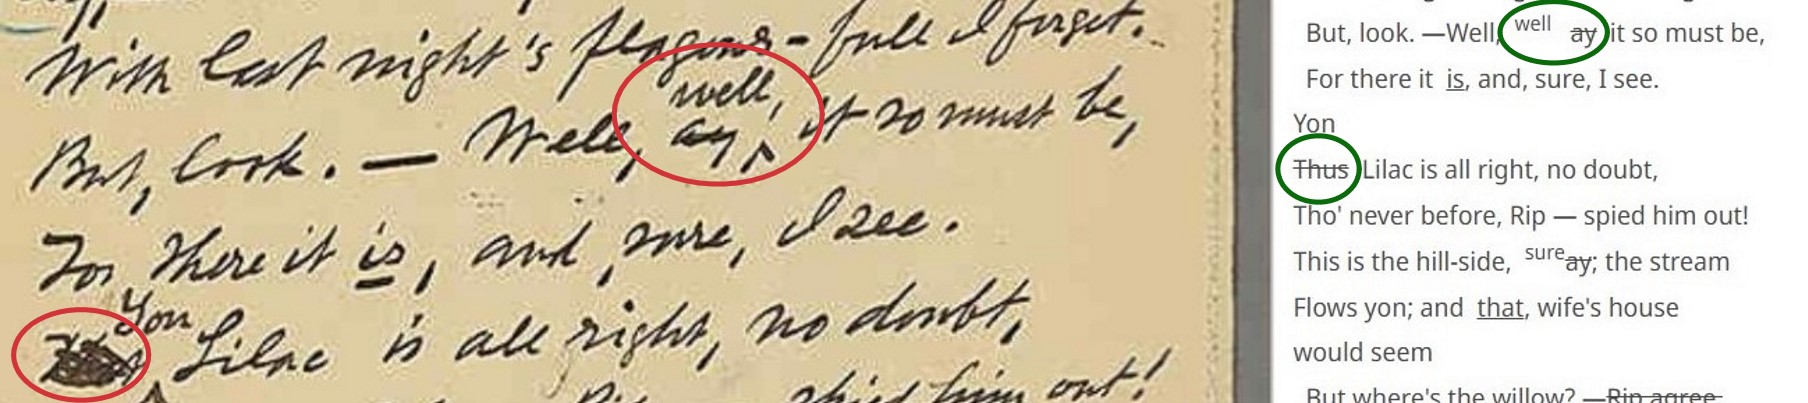 With last night's flagons-full I forget.
well,
But, look. — Well, ay, it so must be,
For there it is, and, sure, I see.
Yon
Lilac is all right, no doubt,
him out!
But, look. —Well, well ay it so must be,
For there it is, and, sure, I see.
Yon
Thus Lilac is all right, no doubt,
Tho' never before, Rip — spied him out!
This is the hill-side, sure ay; the stream
Flows yon; and that, wife's house
would seem
But where's the willow? —Rip agree